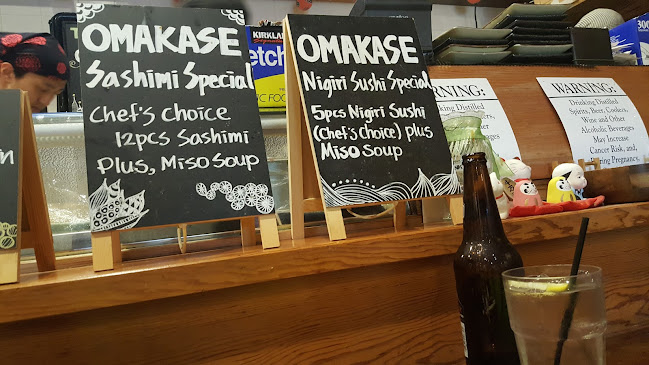 OMAKASE
Sashimi Special
Chef's Choice
12pcs Sashimi
Plus, Miso Soup
OMAKASE
Nigiri Sushi Special
5pcs Nigiri Sushi
(Chef's choice) plus
Miso Soup
KIRKLAND
WARNING:
Drinking Distilled
WARNING:
Drinking Distilled
Spirits, Beer, Coolers,
Wine and Other
Alcoholic Beverages
May Increase
Cancer Risk, and,
During Pregnancy,
300